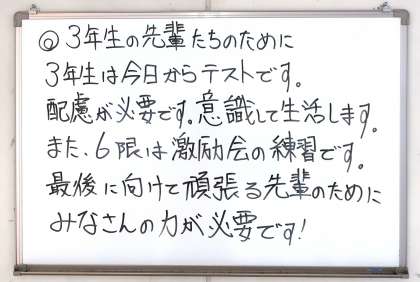 ◎3年生の先輩たちのために
3年生は今日からテストです。
配慮が必要です。意識して生活します。
また、6限は激励会の練習です。
最後に向けて頑張る先輩のために
みなさんの力が必要です!